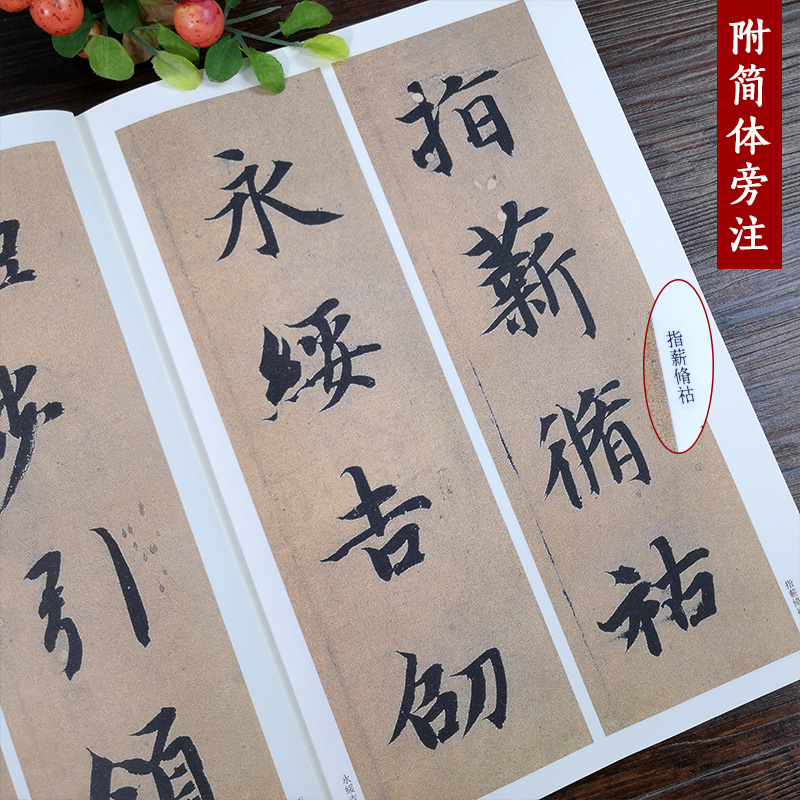 附简体旁注
指薪脩祜
指薪脩祜
指薪脩
永綏吉劭
永綏吉
步引領